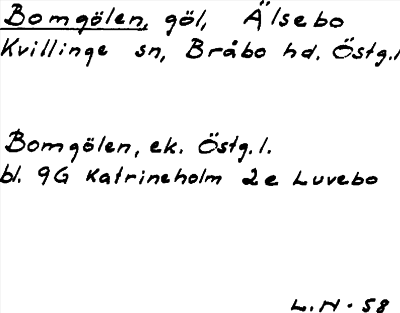 Bomgölen, göl, Älsebo
Kvillinge sn, Bråbo hd. Östg.l
Bomgölen, ek. Östg.l.
bl. 9G Katrineholm 2e Luvebo
L.N. 58